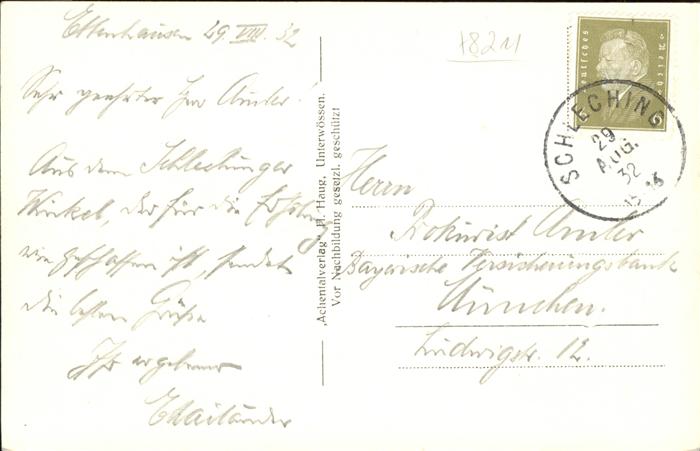 Ettenhausen 29 VIII. 32
Sehr geehrter Herr Amler.
Aus dem Schlechinger
Winkel, der für die Erholung
wie geschaffen ist, sendet
die besten Grüße
Ihr ergebener
"Achentalverlag" H. Haug, Unterwössen.
Vor Nachbildung gesetzl. geschützt
1821
Deutsches Reich
6
SCHLECHING
29
AUG.
32
Herrn
Prokurist Amler
Bayerische Versicherungsbank
München.
Ludwigstr. 12.